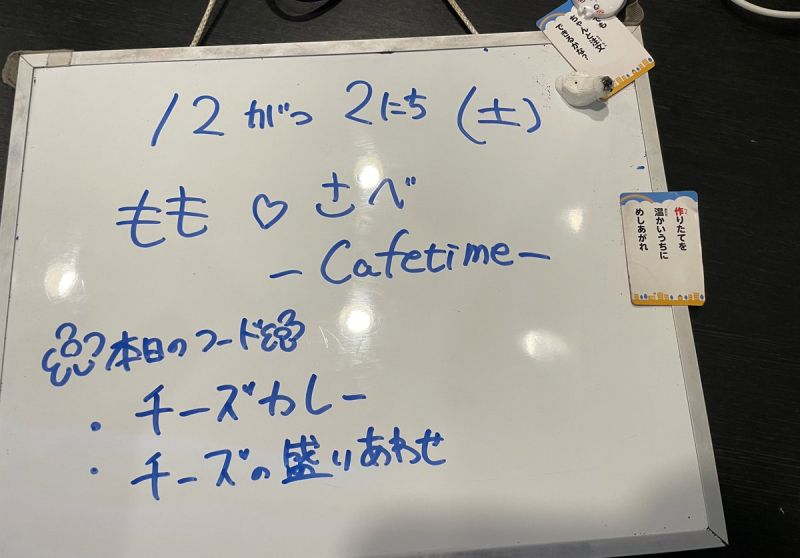 12がつ 2にち (土)
もも♡さべ
- Cafetime -
本日のフード
・チーズカレー
・チーズの盛りあわせ
ちゃんと注文
できるかな?
作りたてを
温かいうちに
めしあがれ